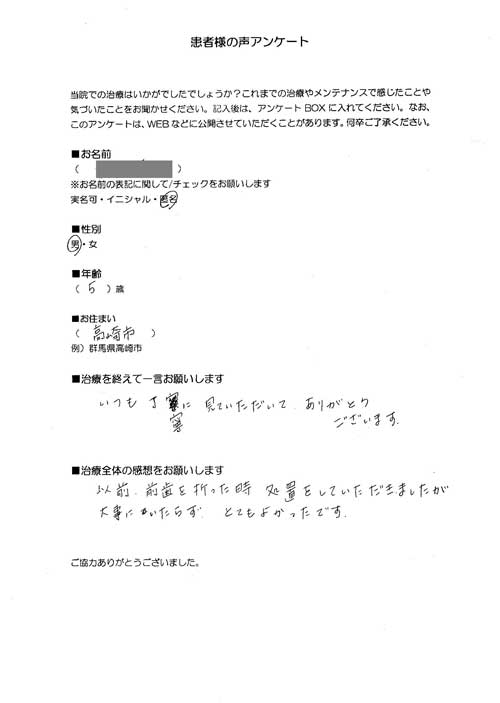 患者様の声アンケート
当院での治療はいかがでしたでしょうか？これまでの治療やメンテナンスで感じたことや
気づいたことをお聞かせください。記入後は、アンケート BOX に入れてください。なお、
このアンケートは、WEB などに公開させていただくことがあります。何卒ご了承ください。
■お名前
（　　　）
※お名前の表記に関して/チェックをお願いします
実名可・イニシャル・匿名
■性別
男・女
■年齢
（ 5 ）歳
■お住まい
（ 高崎市 ）
例）群馬県高崎市
■治療を終えて一言お願いします
いつも 丁寧に 見ていただいて、ありがとう
寧 ございます。
■治療全体の感想をお願いします
以前、前歯を折った時 処置をしていただきましたが
大事にいたらず、とてもよかったです。
ご協力ありがとうございました。